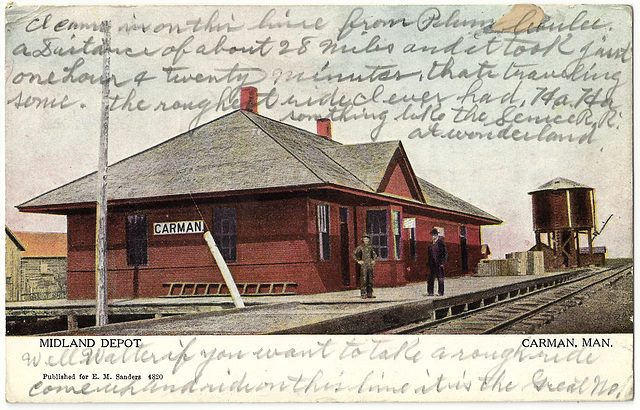 cleanin on this line from Plum Coulee
a distance of about 28 miles and it took just
one hour & twenty minutes, thats traveling
some. the roughest ride I ever had, Ha, Ha
something like the Scenic R.R.
at wonderland.
CARMAN
MIDLAND DEPOT
CARMAN, MAN.
Well Walter if you want to take a rough ride
Published for E. M. Sanders 4820
come up and ride on this line it is the Great No.